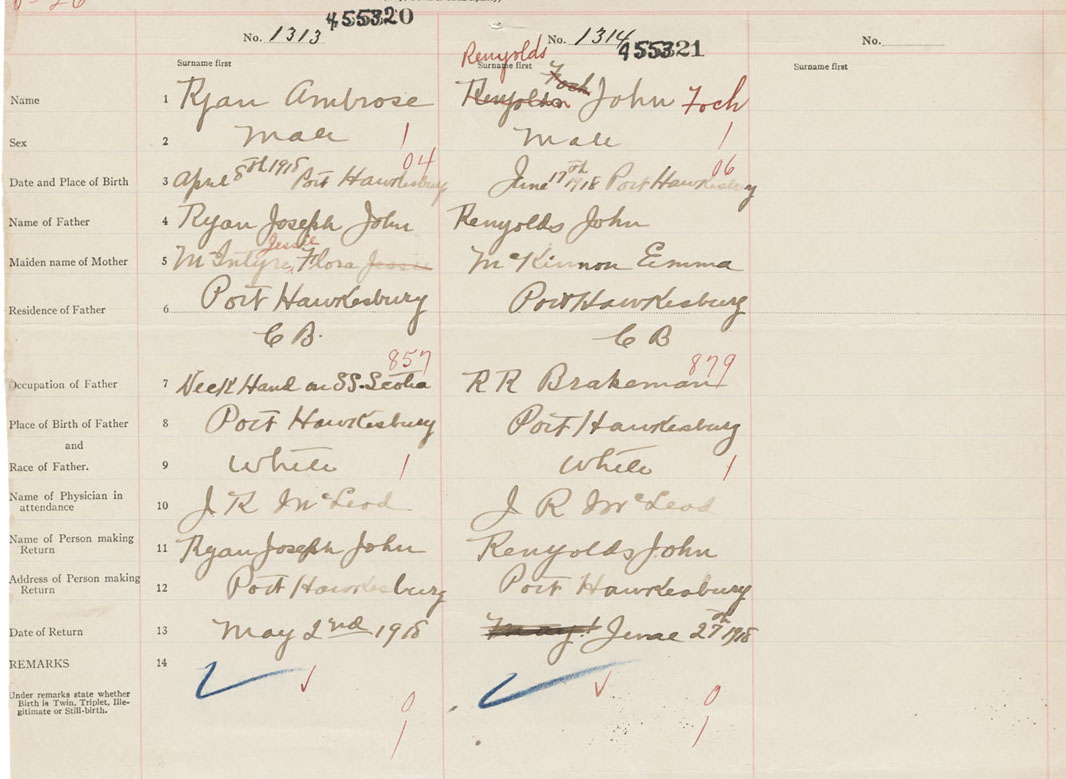 455320
No. 1313
No. 1314
455321
No.
Renyolds
Surname first
Surname first
Surname first
Foch
Name 1 Ryan Ambrose Renyolds John Foch
Sex 2 Male 1 Male 1
04 06
Date and Place of Birth 3 April 8th 1918 Port Hawkesbury June 17th 1918 Port Hawkesbury
Name of Father 4 Ryan Joseph John Renyolds John
Jessie
Maiden name of Mother 5 McIntyre, Flora Jessie McKinnon Emma
Residence of Father 6 Port Hawkesbury Port Hawkesbury
C B. C B
857 879
Occupation of Father 7 Deck Hand on SS. Scotia R R Brakeman
Place of Birth of Father 8 Port Hawkesbury Port Hawkesbury
and
Race of Father. 9 White 1 White 1
Name of Physician in
attendance 10 J. R McLeod J R McLeod
Name of Person making
Return 11 Ryan Joseph John Renyolds John
Address of Person making
Return 12 Port Hawkesbury Port Hawkesbury
Date of Return 13 May 2nd 1918 May! June 27th 1918
REMARKS 14
Under remarks state whether
Birth is Twin, Triplet, Ille-
gitimate or Still-birth.
0 0
1 1